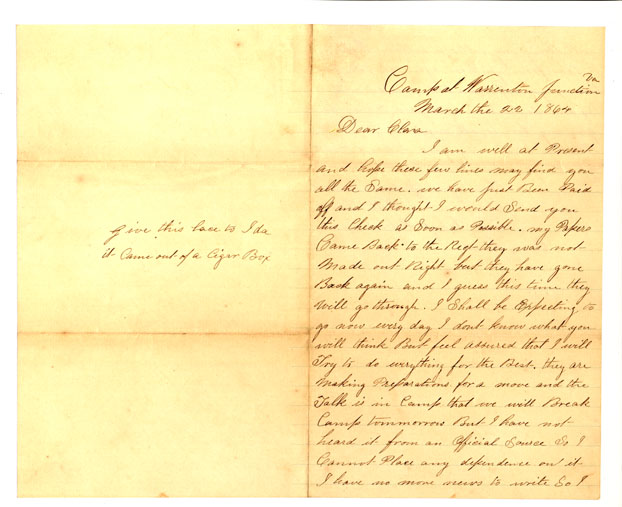 Give this lace to Ida
it Came out of a Cigar Box
Camp at Warrenton Junction Va
March the 22 1864
Dear Clara
I am well at Present
and hope these few lines may find you
all the Same. we have just Been Paid
off and I thought I would Send you
this Check as Soon as Possible. my Papers
Came Back to the Regt they was not
Made out Right but they have gone
Back again and I guess this time they
will go through. I Shall be Expecting to
go now every day I dont know what you
will think But feel assured that I will
Try to do everything for the Best. they are
Making Preparations for a move and the
Talk is in Camp that we will Break
Camp tommorrow But I have not
heard it from an Official Source So I
Cannot Place any dependence on it
I have no more news to write So I